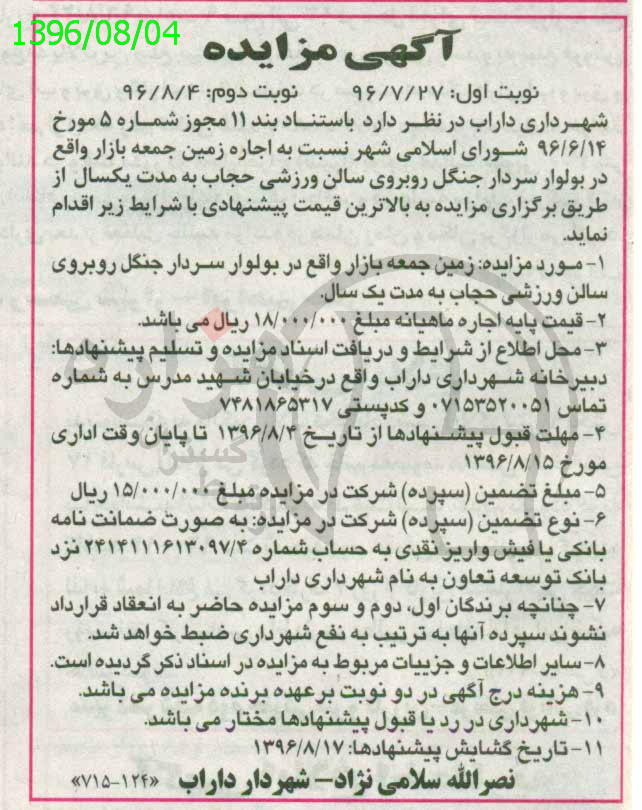 1396/08/04
آگهی مزایده
نوبت اول: ۹۶/۷/۲۷ نوبت دوم: ۹۶/۸/۴
شهرداری داراب در نظر دارد باستناد بند ۱۱ مجوز شماره ۵ مورخ
۹۶/۶/۱۴ شورای اسلامی شهر نسبت به اجاره زمین جمعه بازار واقع
در بولوار سردار جنگل روبروی سالن ورزشی حجاب به مدت یکسال از
طریق برگزاری مزایده به بالاترین قیمت پیشنهادی با شرایط زیر اقدام
نماید.
۱- مورد مزایده: زمین جمعه بازار واقع در بولوار سردار جنگل روبروی
سالن ورزشی حجاب به مدت یک سال.
۲- قیمت پایه اجاره ماهیانه مبلغ ۱۸/۰۰۰/۰۰۰ ریال می باشد.
۳- محل اطلاع از شرایط و دریافت اسناد مزایده و تسلیم پیشنهادها:
دبیرخانه شهرداری داراب واقع درخیابان شهید مدرس به شماره
تماس ۰۷۱۵۳۵۲۰۰۵۱ و کدپستی ۷۴۸۱۸۶۵۳۱۷
۴- مهلت قبول پیشنهادها از تاریخ ۱۳۹۶/۸/۴ تا پایان وقت اداری
مورخ ۱۳۹۶/۸/۱۵
۵- مبلغ تضمین (سپرده) شرکت در مزایده مبلغ ۱۵/۰۰۰/۰۰۰ ریال
۶- نوع تضمین (سپرده) شرکت در مزایده: به صورت ضمانت نامه
بانکی یا فیش واریز نقدی به حساب شماره ۲۴۱۴۱۱۱۶۱۳۰۹۷/۴ نزد
بانک توسعه تعاون به نام شهرداری داراب
۷- چنانچه برندگان اول، دوم و سوم مزایده حاضر به انعقاد قرارداد
نشوند سپرده آنها به ترتیب به نفع شهرداری ضبط خواهد شد.
۸- سایر اطلاعات و جزییات مربوط به مزایده در اسناد ذکر گردیده است.
۹- هزینه درج آگهی در دو نوبت برعهده برنده مزایده می باشد.
۱۰- شهرداری در رد یا قبول پیشنهادها مختار می باشد.
۱۱- تاریخ گشایش پیشنهادها: ۱۳۹۶/۸/۱۷
نصرالله سلامی نژاد- شهردار داراب «۱۲۴-۷۱۵»